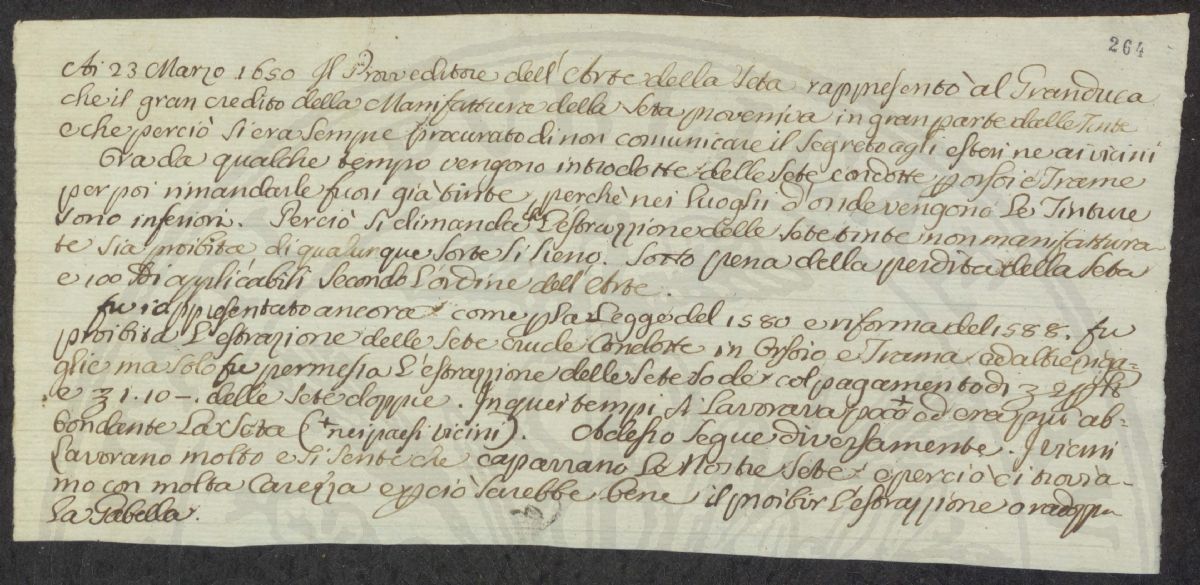 264
Ai 23 Marzo 1650 Il Proveditore dell'Arte della Seta rappresentò al Granduca
che il gran credito della Manifattura della Seta proveniva in gran parte dalle Tinte
e che perciò si era sempre procurato di non comunicare il segreto agli esteri ne ai vicini
Ora da qualche tempo vengono introdotte delle Sete condotte p orsoi e Trame
per poi rimandarle fuori già tinte, perchè nei luoghi d'onde vengono le Tinture
sono inferiori. Perciò si dimanda che l'estrazzione delle Sete tinte non manifattura-
te sia proibita di qualunque sorte si sieno. Sotto pena della perdita della Seta
e 100 di applicabili secondo l'ordine dell'Arte.
fu rappresentato ancora come p la Legge del 1580 e riforma del 1588. fu
proibita l'estrazione delle Sete crude condotte in Orsoio e Trama ad altre
glie ma solo fu permessa l'estrazzione delle Sete sode col pagamento di 2 p
e 1.10 -. delle Sete doppie. In quei tempi si lavorava poco + ed era più ab-
bondante la Seta (+ nei paesi vicini). Adesso segue diversamente. I vicini
lavorano molto e si sente che caparrano le nostre Sete e perciò ci trovia-
mo con molta carezza e pciò sarebbe bene il proibir l'estrazzione o
la Gabella.